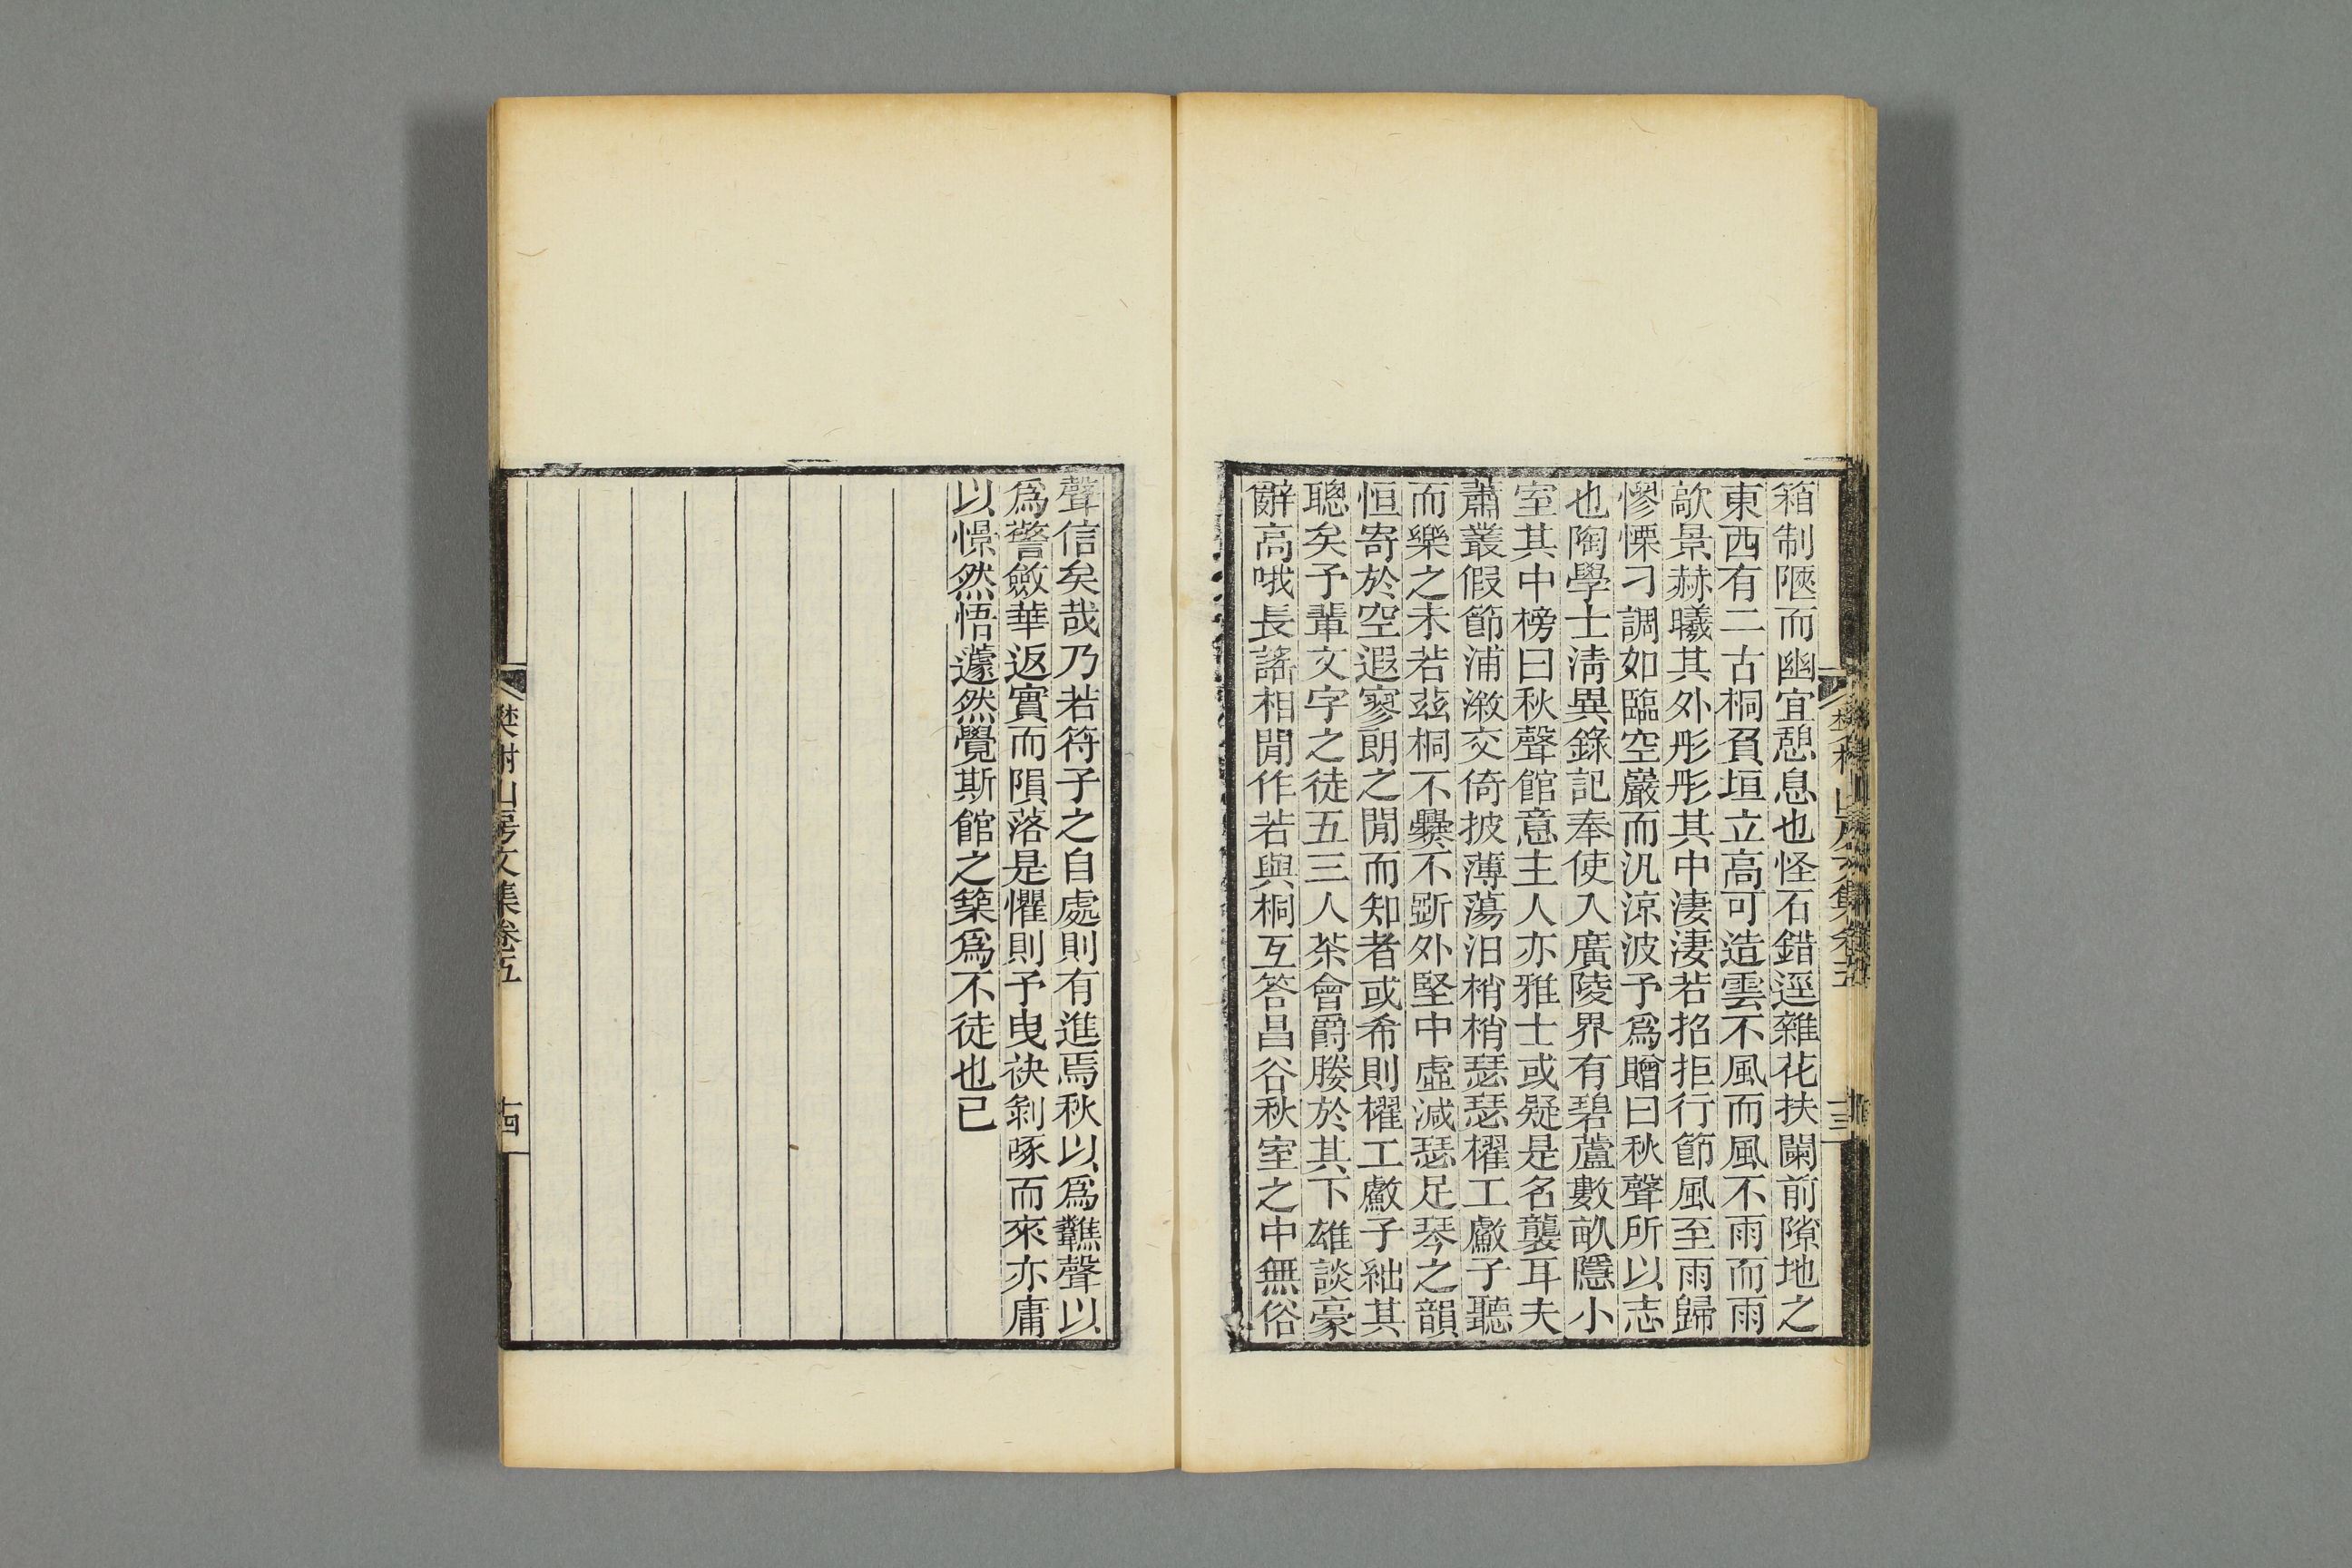 箱制陿而幽宜憩息也怪石錯逕雜花扶闌前隙地之
東西有二古桐負垣立高可造雲不風而風不雨而雨
歊景赫曦其外彤彤其中淒淒若招拒行節風至雨歸
慘慄刁調如臨空巖而汎涼波予爲贈曰秋聲所以志
也陶學士淸異錄記奉使入廣陵界有碧蘆數畝隱小
室其中榜曰秋聲館意主人亦雅士或疑是名襲耳夫
蕭叢假節浦漵交倚披薄蕩汨梢梢瑟瑟櫂工䱷子聽
而樂之未若茲桐不爨不斲外堅中虛減瑟足琴之韻
恒寄於空遐寥朗之閒而知者或希則櫂工䱷子絀其
聰矣予輩文字之徒五三人茶會爵勝於其下雄談豪
辭高哦長謠相閒作若與桐互答昌谷秋室之中無俗
聲信矣哉乃若符子之自處則有進焉秋以爲龝聲以
爲警斂華返實而隕落是懼則予曳袂剝啄而來亦庸
以憬然悟蘧然覺斯館之築爲不徒也已
樊榭山房文集卷五
十三
樊榭山房文集卷五
十四